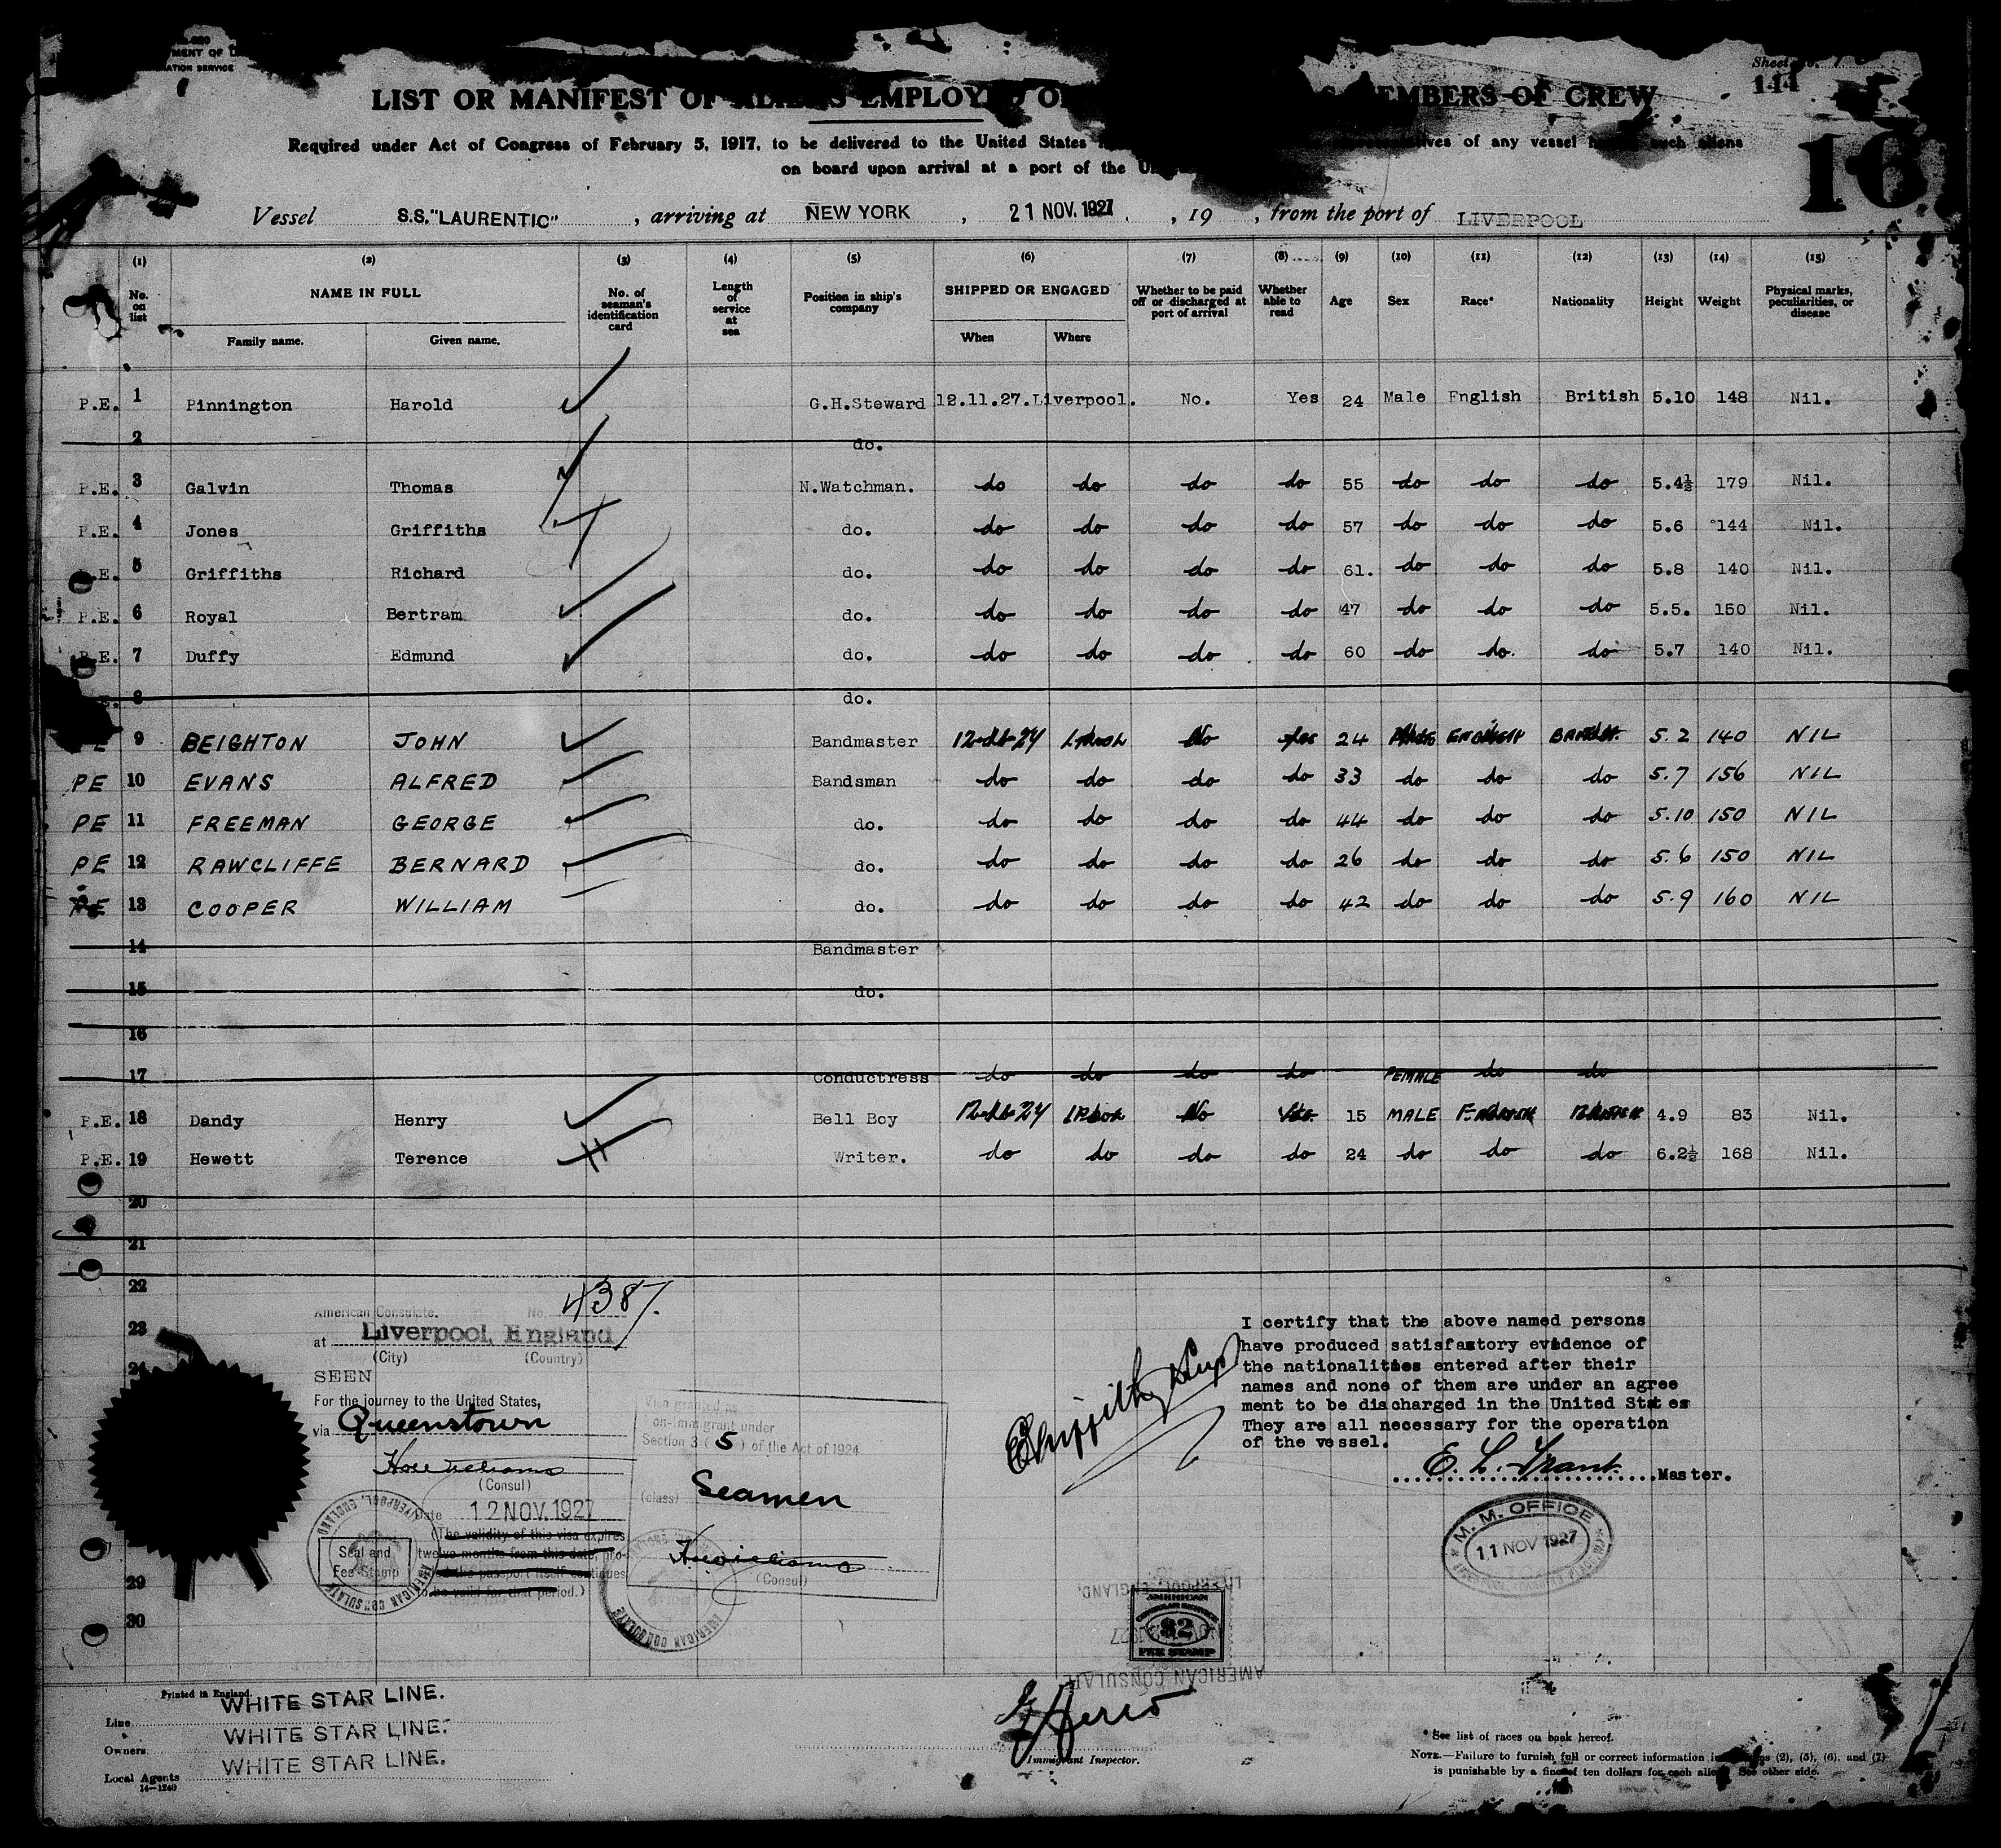 Sheet No. 7
144
16
LIST OR MANIFEST OF ALIENS EMPLOYED ON MEMBERS OF CREW
Required under Act of Congress of February 5, 1917, to be delivered to the United States representatives of any vessel having such aliens
on board upon arrival at a port of the United
Vessel S.S."LAURENTIC" , arriving at NEW YORK , 21 NOV. 1927 , 19 , from the port of LIVERPOOL
(1) (2) (3) (4) (5) (6) (7) (8) (9) (10) (11) (12) (13) (14) (15)
No. on list NAME IN FULL No. of seaman's identification card Length of service at sea Position in ship's company SHIPPED OR ENGAGED Whether to be paid off or discharged at port of arrival Whether able to read Age Sex Race* Nationality Height Weight Physical marks, peculiarities, or disease
Family name. Given name. When Where
P.E. 1 Pinnington Harold G.H.Steward 12.11.27. Liverpool. No. Yes 24 Male English British 5.10 148 Nil.
2 do.
P.E. 3 Galvin Thomas N.Watchman. do do do do 55 do do do 5.4½ 179 Nil.
P.E. 4 Jones Griffiths do. do do do do 57 do do do 5.6 144 Nil.
P.E. 5 Griffiths Richard do. do do do do 61. do do do 5.8 140 Nil.
P.E. 6 Royal Bertram do. do do do do 47 do do do 5.5. 150 Nil.
P.E. 7 Duffy Edmund do. do do do do 60 do do. do 5.7 140 Nil.
8 do.
PE 9 BEIGHTON JOHN Bandmaster No Yes 24 5.2 140 NIL
PE 10 EVANS ALFRED Bandsman do do do do 33 do do do 5.7 156 NIL
PE 11 FREEMAN GEORGE do. do do do do 44 do do do 5.10 150 NIL
PE 12 RAWCLIFFE BERNARD do. do do do do 26 do do do 5.6 150 NIL
PE 13 COOPER WILLIAM do. do do do do 42 do do do 5.9 160 NIL
14 Bandmaster
15 do.
16
17 Conductress do do do do FEMALE do do
P.E. 18 Dandy Henry Bell Boy No Yes. 15 MALE 4.9 83 Nil.
P.E. 19 Hewett Terence Writer. do do do do 24 do do do 6.2½ 168 Nil.
20
21
22
23
24
29
30
American Consulate. No. 4387.
at Liverpool, England
(City) (Country)
SEEN
For the journey to the United States,
via Queenstown
(Consul)
Date 12 NOV. 1927
(The validity of this visa expires
twelve months from this date, pro-
the passport itself continues
to be valid for that period.)
Seal and
Fee Stamp
AMERICAN CONSULATE LIVERPOOL, ENGLAND
Visa granted as
non-immigrant under
Section 3 (5) of the Act of 1924
(class) Seamen
(Consul)
AMERICAN CONSULATE
I certify that the above named persons
have produced satisfastory evidence of
the nationalities entered after their
names and none of them are under an agree
ment to be discharged in the United States
They are all necessary for the operation
of the vessel.
E. L. Trant. Master.
M. M. OFFICE
11 NOV 1927
LIVERPOOL, ENGLAND.
AMERICAN
$2
FEE STAMP
AMERICAN CONSULATE
Immigrant Inspector.
Printed in England.
Line WHITE STAR LINE.
Owners WHITE STAR LINE.
Local Agents WHITE STAR LINE.
14—1240
* See list of races on back hereof.
NOTE.—Failure to furnish full or correct information in columns (2), (5), (6), and (7)
is punishable by a fine of ten dollars for each alien. See other side.